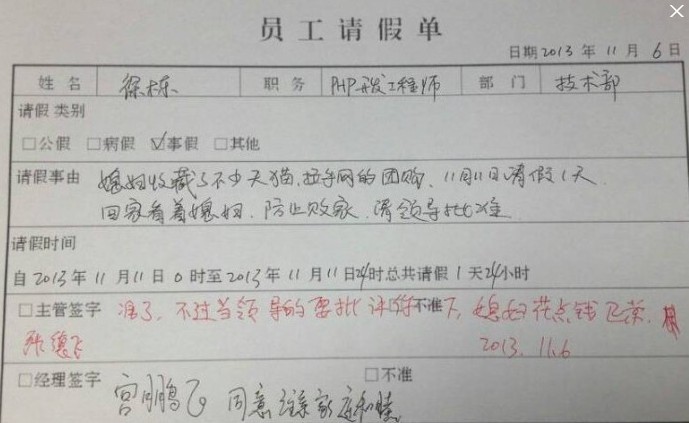 员工请假单
日期 2013 年 11 月 6 日
姓名 徐栋 职务 PHP开发工程师 部门 技术部
请假类别
□公假 □病假 ☑事假 □其他
请假事由 媳妇收藏了不少天猫,拉手网的团购、11月11日请假1天
回家看着媳妇,防止败家,请领导批准
请假时间
自 2013 年 11 月 11 日 0 时至 2013 年 11 月 11 日 24 时总共请假 1 天 24 小时
□主管签字 准了、不过当领导的要批评你 不准 下,媳妇花点钱
张德飞 2013.11.6
□经理签字 □不准
宫鹏飞 同意 家庭和睦